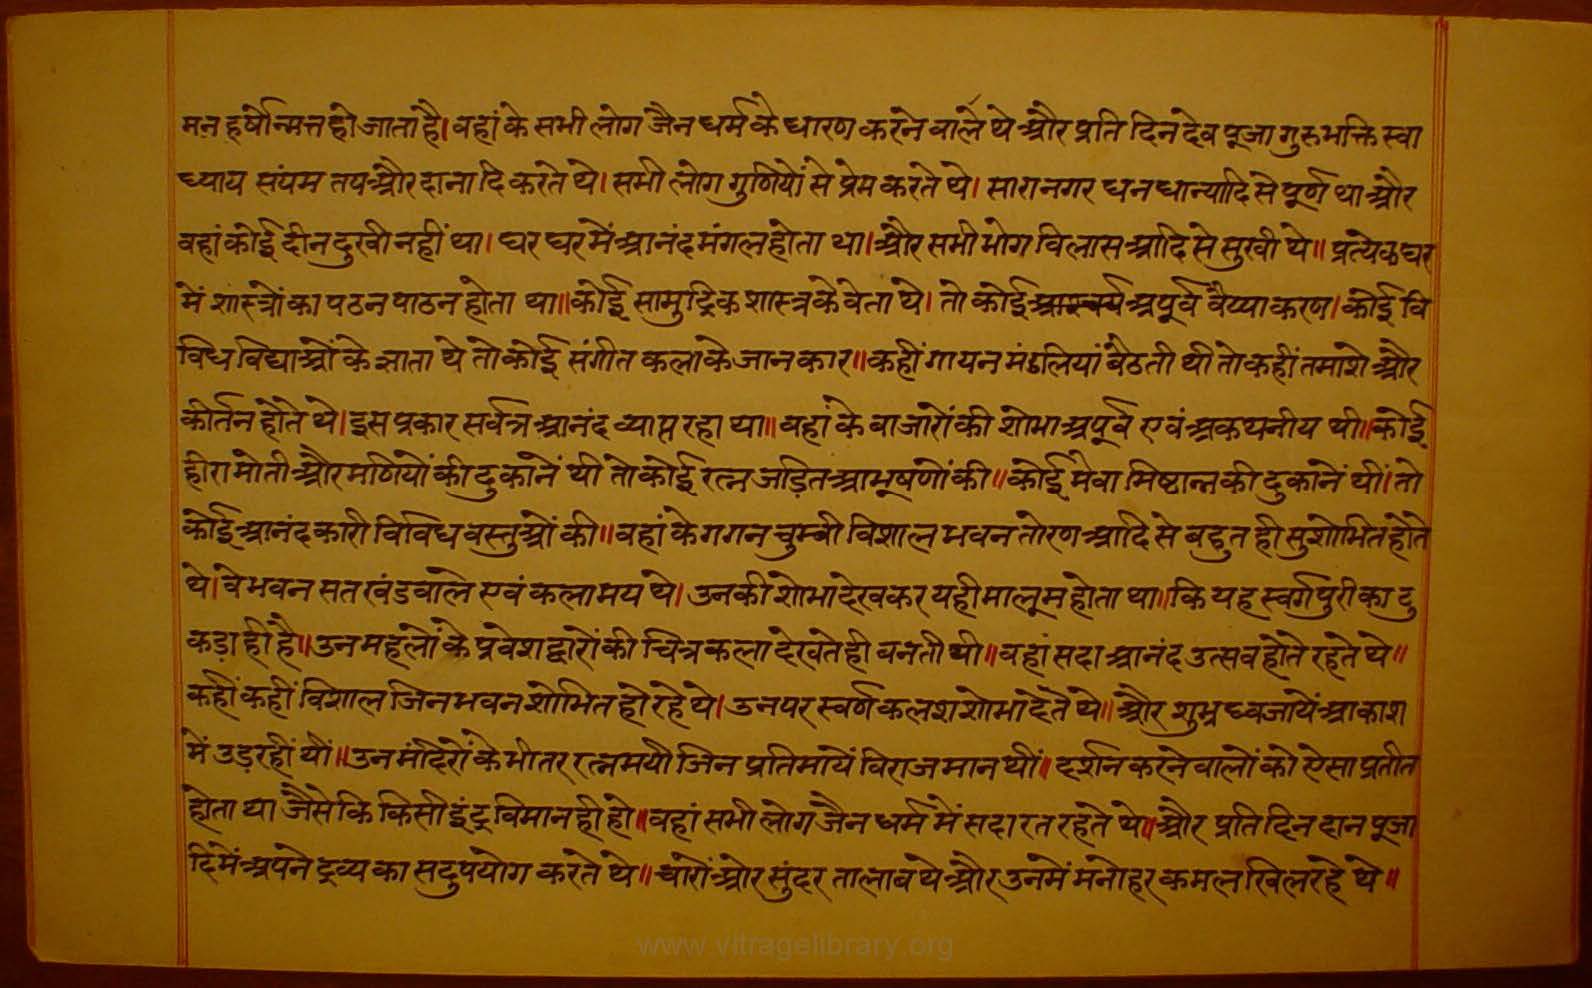 मन हर्षोन्मत्त हो जाता है। वहां के सभी लोग जैन धर्म के धारण करने वाले थे और प्रति दिन देव पूजा गुरु भक्ति स्वा
ध्याय संयम तप और दाना दि करते थे। सभी लोग गुणियों से प्रेम करते थे। सारा नगर धन धान्यादि से पूर्ण था और
वहां कोई दीन दुखी नहीं था। घर घर में आनंद मंगल होता था। और सभी भोग विलास आदि से सुखी थे॥ प्रत्येक घर
में शास्त्रों का पठन पाठन होता था॥ कोई सामुद्रिक शास्त्र के वेता थे। तो कोई आश्चर्य अपूर्व वैय्याकरण। कोई वि
विध विद्याओं के ज्ञाता थे तो कोई संगीत कला के जानकार॥ कहीं गायन मंडलियां बैठती थी तो कहीं तमाशे और
कीर्तन होते थे। इस प्रकार सर्वत्र आनंद व्याप्त रहा था॥ वहां के बाजारों की शोभा अपूर्व एवं अकथनीय थी॥ कोई
हीरा मोती और मणियों की दुकानें थी तो कोई रत्न जड़ित आभूषणों की॥ कोई मेवा मिष्टान्न की दुकानें थीं। तो
कोई आनंदकारी विविध वस्तुओं की॥ वहां के गगन चुम्बी विशाल भवन तोरण आदि से बहुत ही सुशोभित होते
थे। वे भवन सतखंड वाले एवं कलामय थे। उनकी शोभा देखकर यही मालूम होता था॥ कि यह स्वर्गपुरी का टु
कड़ा ही है॥ उन महलों के प्रवेश द्वारों की चित्रकला देखते ही बनती थी॥ वहां सदा आनंद उत्सव होते रहते थे॥
कहीं कहीं विशाल जिन भवन शोभित हो रहे थे। उनपर स्वर्ण कलश शोभा देते थे॥ और शुभ्र ध्वजायें आकाश
में उड़ रहीं थीं॥ उन मंदिरों के भीतर रत्नमयी जिन प्रतिमायें विराजमान थीं। दर्शन करने वालों को ऐसा प्रतीत
होता था जैसे कि किसी इंद्र विमान ही हो॥ वहां सभी लोग जैन धर्म में सदा रत रहते थे॥ और प्रति दिन दान पूजा
दि में अपने द्रव्य का सदुपयोग करते थे॥ चारों ओर सुंदर तालाब थे और उनमें मनोहर कमल खिल रहे थे॥
www.vitragelibrary.org